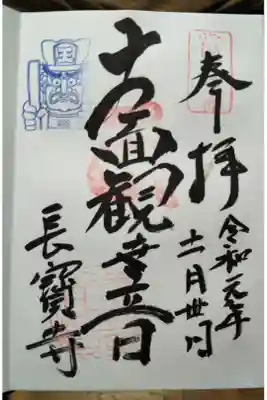 奉拝
令和元年
十一月丗日
十一面観世音
長寳寺